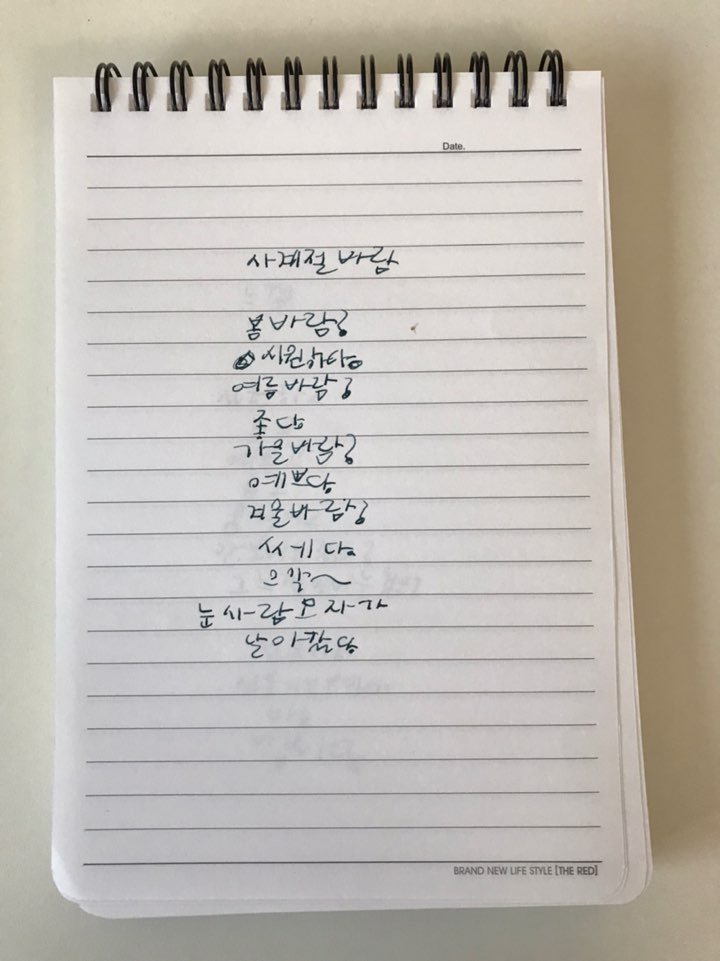 Date.
사계절 바람
봄바람은
시원하다
여름바람은
좋다
가을바람은
예쁘다
겨울바람은
쎄다
눈사람 모자가
날아갔다
BRAND NEW LIFE STYLE [THE RED]